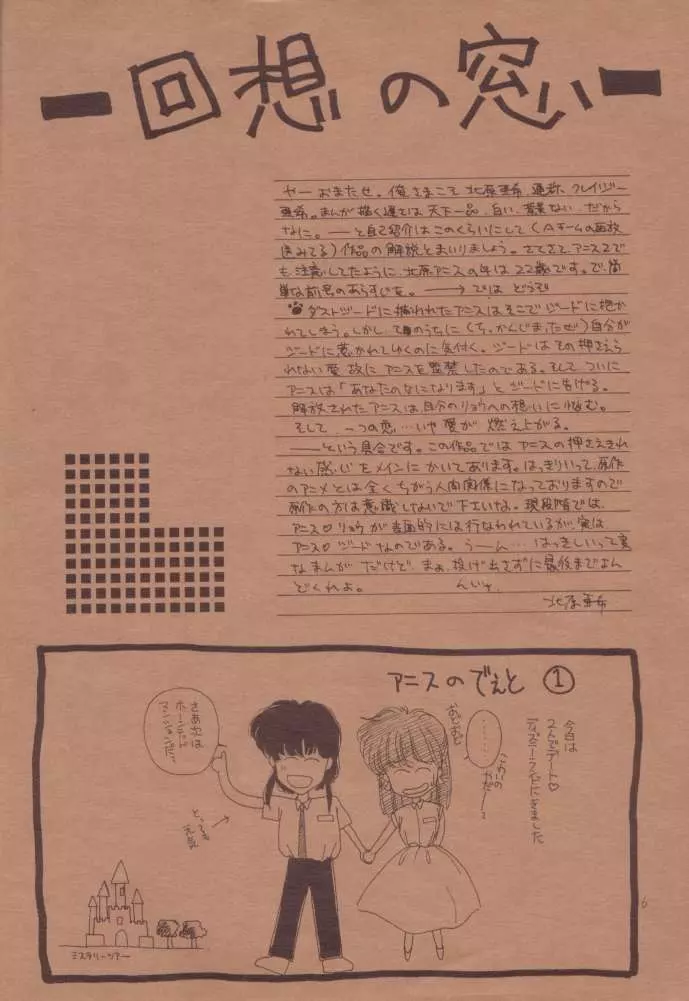 回想の窓
ヤー おまたせ。俺さまこそ 北原亜希、通称、クレイジー
亜希。まんが描く速さは 天下一品、白い、背景ない、だから
なに。── と自己紹介は このくらいにして
作品の解説とまいりましょう。さてさて、アニス2で
も、注意してたように、北原アニスの年は22歳です。で、簡
単な前号のあらすじを。──→ では どうぞ
ダストジードに捕われたアニスは そこで ジードに抱か
れてしまう。しかし、そのうちに 自分が
ジードに惹かれてゆくのに気付く。ジードは その押さえら
れない愛故に アニスを監禁したのである。そして ついに
アニスは「あなたのなにになります」と ジードに告げる。
解放されたアニスは、自分のリョウへの想いに悩む。
そして 一つの恋…いや愛が 燃え上がる。
──という具合です。この作品では アニスの押さえきれ
ない感じをメインにかいてあります。はっきりいって、原作
のアニメとは全くちがう人間関係になっておりますので
原作の方は意識しないで下さいな。現段階では、
アニス♡リョウが表面的には行なわれているが、実は
アニス♡ジードなのである。うーん… はっきしいって変
なまんが だけど、まぁ、投げ出さずに最後までよん
どくれよ。
北原亜希
アニスのでぇと ①
今日は
2人でデート♡
ディズニーランドにきました
さあ次は
ホーンテッド
マンションだっ
ミステリーツアー
6